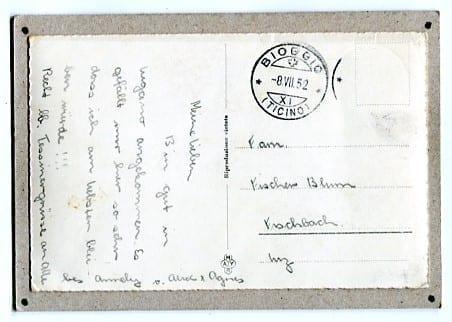 Meine Lieben
Bin gut in
Lugano angekommen. Es
gefällt mir hier so sehr
dass ich am liebsten blei-
ben würde !!!
Recht lb. Tessinergrüsse an Alle
bes Annely v. Alice & Agnes
Riproduzione vietata
BIOGGIO
-8.VII.52
XI
(TICINO)
Fam.
Fischer Blum
Fischbach.
Luz